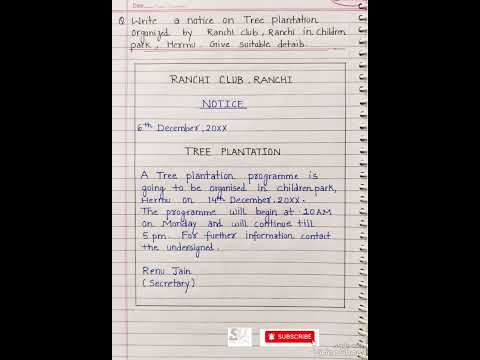 Date
Q Write a notice on Tree plantation
organized by Ranchi club, Ranchi in Children
park, Hermu. Give suitable details.
RANCHI CLUB, RANCHI
NOTICE
6th December, 20XX
TREE PLANTATION
A Tree plantation programme is
going to be organised in children park,
Hermu on 14th December, 20XX.
The programme will begin at 10AM
on Monday and will continue till
5 pm. For further information contact
the undersigned.
Renu Jain
(Secretary)
SUBSCRIBE